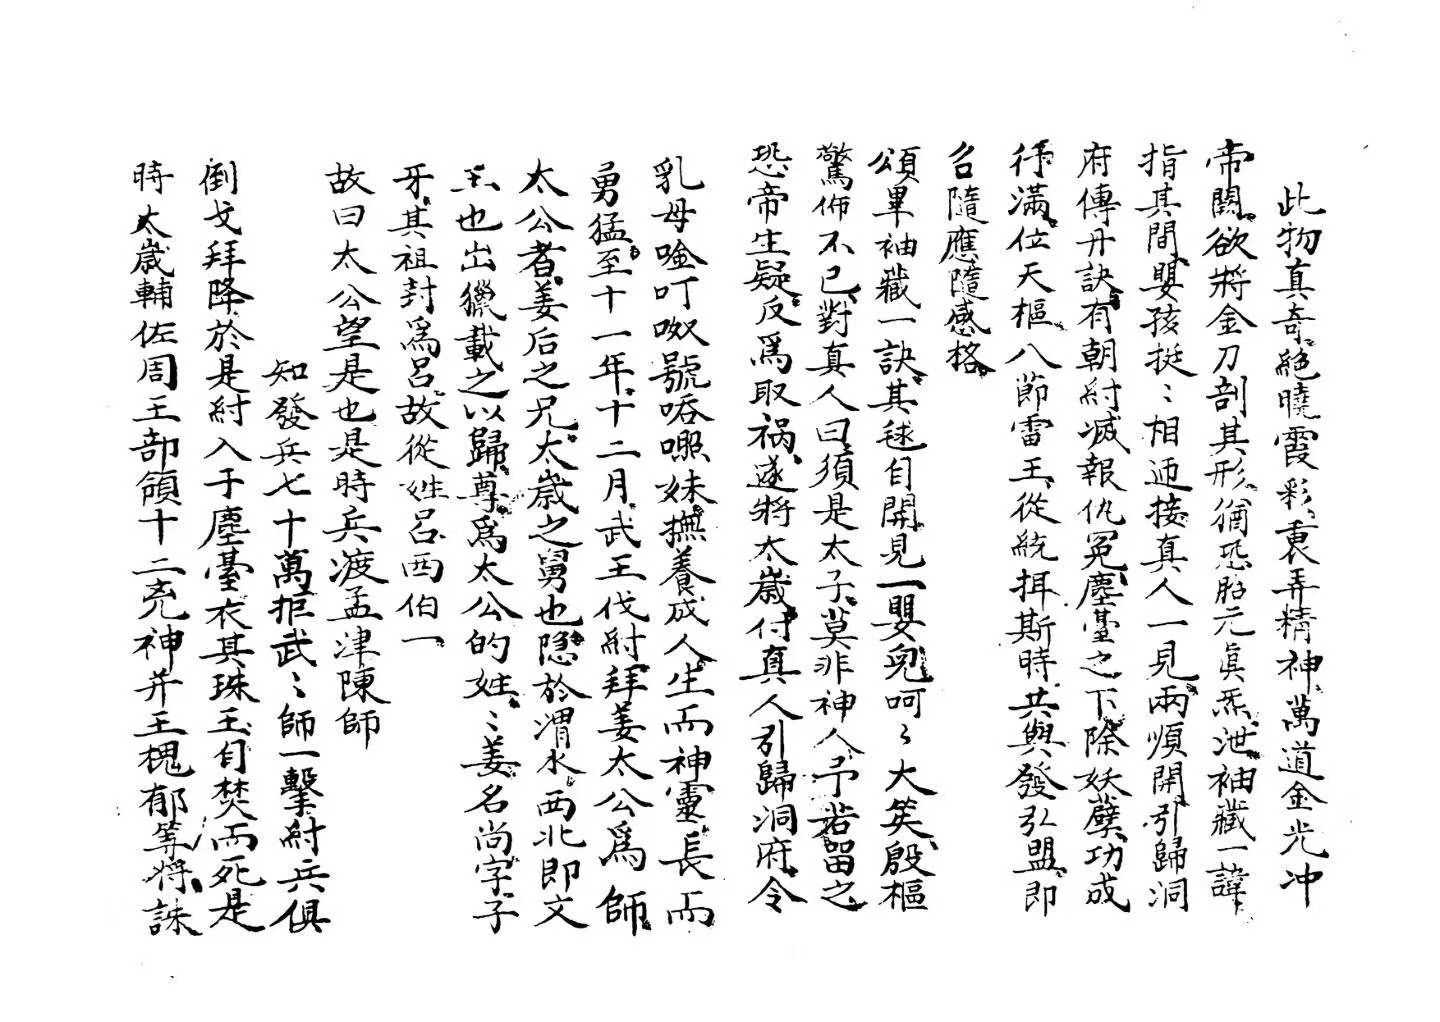 此物真奇絕曉霞彩裹弄精神萬道金光冲
帝闕欲將金刀剖其形猶恐胎元眞炁泄袖藏一諱
指其間嬰孩挺〻相迊接真人一見兩順開引歸洞
府傳丹訣有朝紂滅報仇冤塵臺之下除妖孽功成
行滿位天樞八節雷王從統揖斯時共與發弘盟即
召隨應隨感格
頌畢袖藏一訣其毬自開見一嬰兒呵〻大笑殷樞
驚怖不已對真人曰須是太子莫非神人予若留之
恐帝生疑反為取禍遂將太歲付真人引歸洞府令
乳母唫叮呶號哚嘿妹撫養成人生而神靈長而
勇猛至十一年十二月武王伐紂拜姜太公為師
太公者姜后之兄太歲之舅也隱於渭水西北即文
王也出獵載之以歸尊為太公的姓〻姜名尚字子
牙其祖封為呂故從姓呂西伯一
故曰太公望是也是時兵渡孟津陳師
知發兵七十萬拒武〻師一擊紂兵俱
倒戈拜降於是紂入于塵臺衣其珠玉自焚而死是
時太歲輔佐周王部領十二兇神并王槐郁等將誅